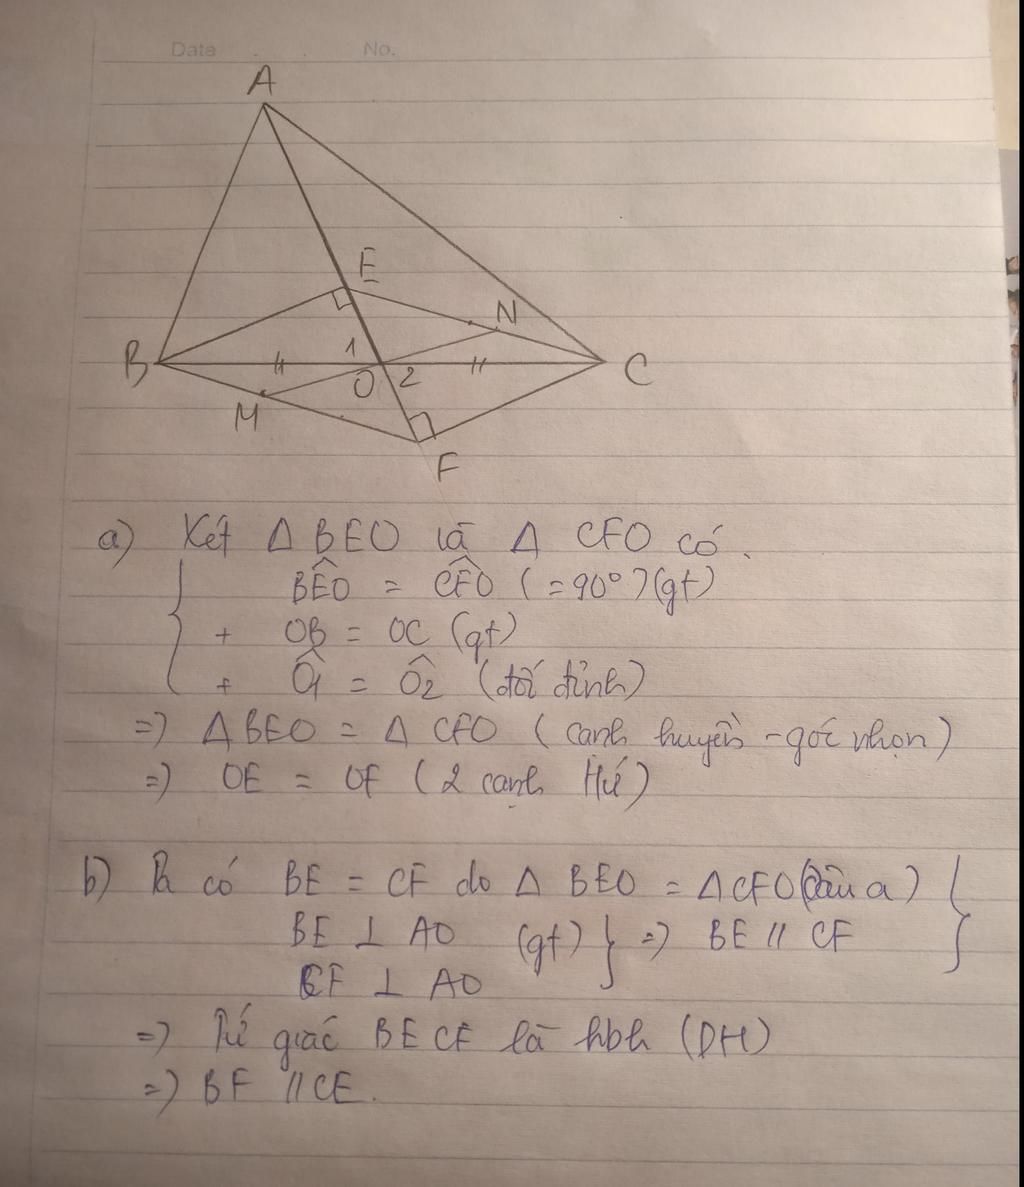 Date . . No.
A
E
N
B 1 C
O 2
M
F
a) Xét Δ BEO và Δ CFO có.
BÊO = CF̂O (= 90°) (gt)
+ OB = OC (gt)
+ Ô1 = Ô2 (đối đỉnh)
=) Δ BEO = Δ CFO ( cạnh huyền - góc nhọn)
=) OE = OF ( 2 cạnh tứ)
b) Ta có BE = CF do Δ BEO = Δ CFO (câu a)
BE ⊥ AO (gt) } =) BE // CF
CF ⊥ AO
=) Tứ giác BECF là hbh (DH)
=) BF // CE.